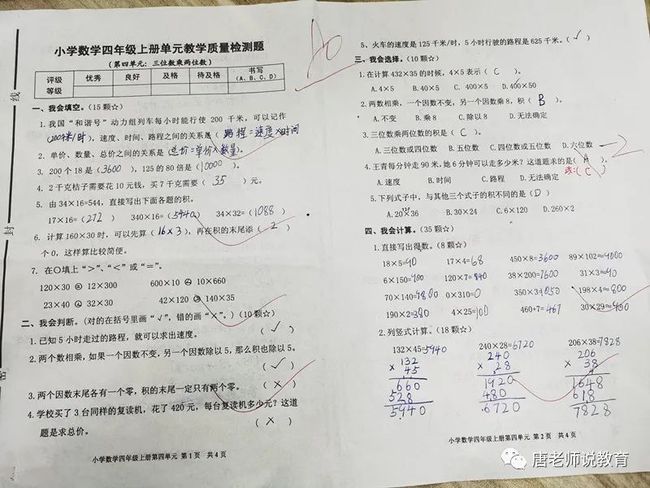 小学数学四年级上册单元教学质量检测题
(第四单元:三位数乘两位数)
评级 优秀 良好 及格 待及格 书写
等级 (A、B、C、D)
一、我会填空。(15颗☆)
1. 我国“和谐号”动力组列车每小时能行 200 千米,可以记作
(200千米/时),速度、时间、路程之间的关系是(路程=速度×时间)
2. 单价、数量、总价之间的关系是(总价=单价×数量)。
3. 200个18是(3600),125的80倍是(10000)。
4. 2千克桔子需要花10元钱,买7千克需要(35)元。
5. 由34×16=544,直接写出下面各题的积。
17×16=(272) 340×16=(5440) 34×32=(1088)
6. 计算160×30时,可以先算(16×3),再在积的末尾添(2)
个0,这样算比较简便。
7. 在○填上“>”、“<”或“=”。
120×30 12×300 600×10 10×660
23×40 32×30 42×120 140×35
二、我会判断。(对的在括号里画“√”,错的画“×”。)(10颗☆)
1. 已知5小时走过的路程,就可以求出速度。 (√)
2. 两个数相乘,如果一个因数不变,另一个因数除以5,那么积也除以5。
(√)
3. 两个因数末尾各有一个零,积的末尾一定只有两个零。 (×)
4. 学校买了3台同样的复读机,花了420元,每台复读机多少元?这道
题是求总价。 (×)
小学数学四年级上册第四单元 第1页 共4页
5、火车的速度是125千米/时,5小时行驶的路程是625千米。(√)
三、我会选择。(10颗☆)
1. 在计算432×35的时候,4×5表示(C)。
A. 4×5 B. 40×5 C. 400×5 D. 400×50
2. 两数相乘,一个因数不变,另一个因数乘8,积(B)。
A. 不变 B. 乘8 C. 除以8 D. 无法确定
3. 三位数乘两位数的积是(C)。
A. 三位数或四位数 B. 五位数 C. 四位数或五位数 D. 六位数
4. 王青每分钟走90米,她6分钟可以走多少米?这道题求的是(A)。
A. 速度 B. 时间 C. 路程 D. 无法确定 改:(C)
5. 下列式子中,与其他三个式子的积不同的是(D)
A. 20×36 B. 30×24 C. 6×120 D. 260×2
四、我会计算。(35颗☆)
1. 直接写出得数。(8颗☆)
18×5=90 17×4=68 450×8=3600
6×150=900 120×7=840 38×200=7600 31×3=
70×140=9800 0×310=0 198×4≈800
4×25=100 460+7=467
2. 列竖式计算。(18颗☆)
132×45=5940 240×28=6720 206×38=7828
132 240 206
× 45 × 28 × 38
660 1920 1648
528 480 618
5940 6720 7828
小学数学四年级上册第四单元 第2页 共4页
线
封
密
唐老师说教育